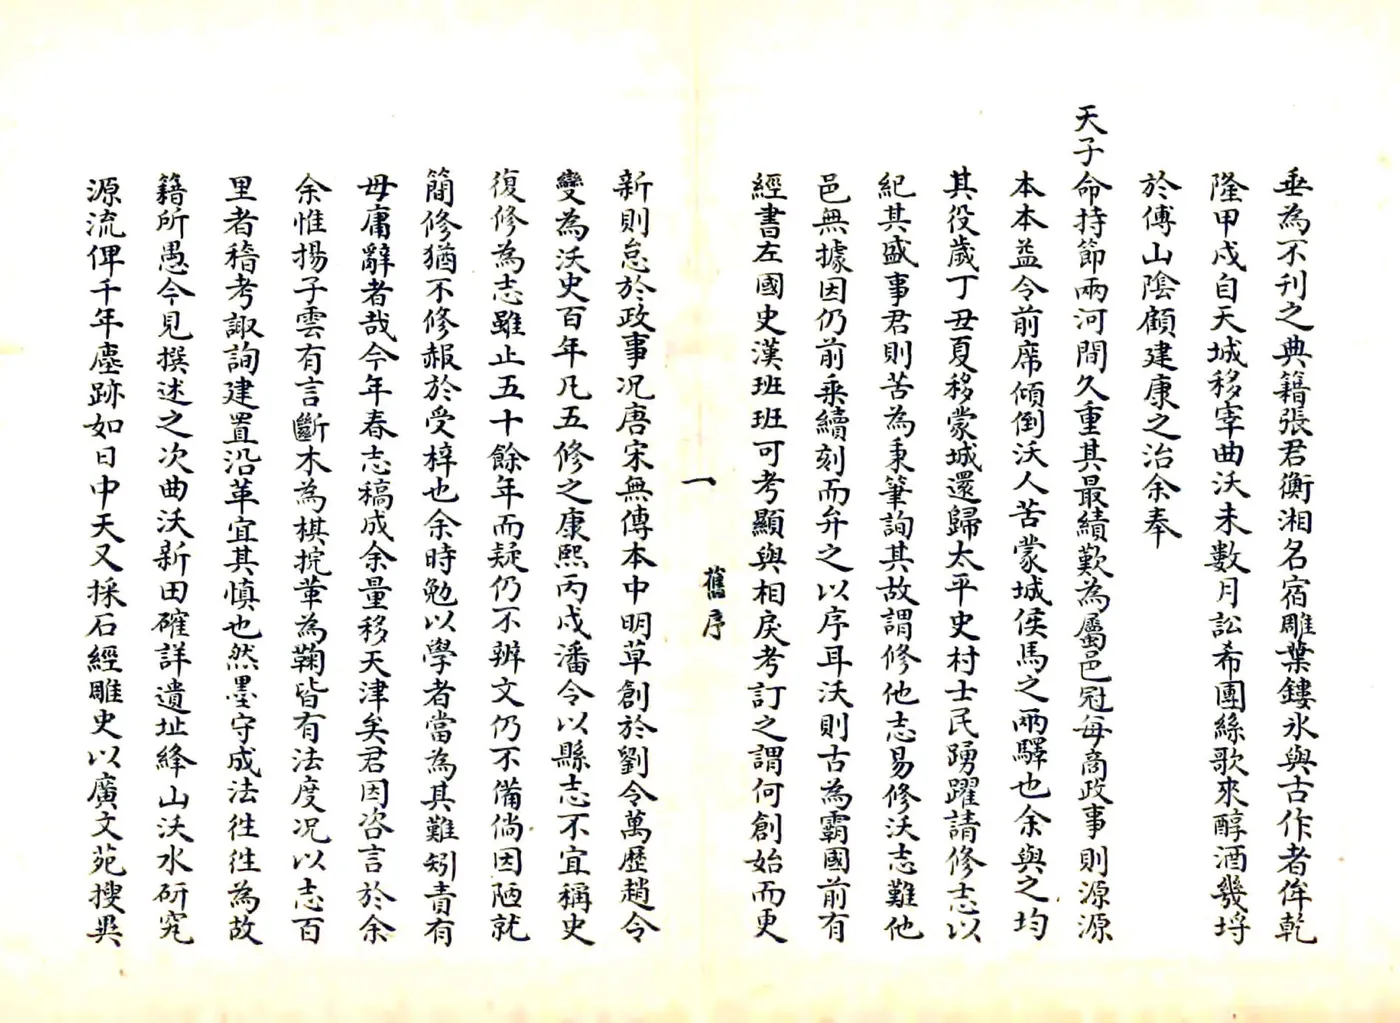 垂為不刊之典籍張君衡湘名宿雕葉鏤氷與古作者侔乾
隆甲戍自天城移宰曲沃未數月訟希團絲歌來醇酒幾埒
於傅山陰顧建康之治余奉
天子命持節兩河間久重其最績歎為屬邑冠每商政事則源源
本本益令前席傾倒沃人苦蒙城侯馬之兩驛也余與之均
其役歲丁丑夏移蒙城還歸太平史村士民踴躍請修志以
紀其盛事君則苦為秉筆詢其故謂修他志易修沃志難他
邑無據因仍前乗續刻而弁之以序耳沃則古為霸國前有
經書左國史漢班班可考顯與相戾考訂之謂何創始而更
一
舊序
新則怠於政事况唐宋無傳本中明草創於劉令萬歷趙令
變為沃史百年凡五修之康熙丙戍潘令以縣志不宜稱史
復修為志雖止五十餘年而疑仍不辨文仍不備倘因陋就
簡修猶不修赧於受梓也余時勉以學者當為其難矧責有
毋庸辭者哉今年春志稿成余量移天津矣君因咨言於余
余惟揚子雲有言斷木為棋捖革為鞠皆有法度况以志百
里者稽考諏詢建置沿革宜其慎也然墨守成法徃徃為故
籍所愚今見撰述之次曲沃新田確詳遺址絳山沃水研究
源流俾千年塵跡如日中天又採石經雕史以廣文苑搜吳